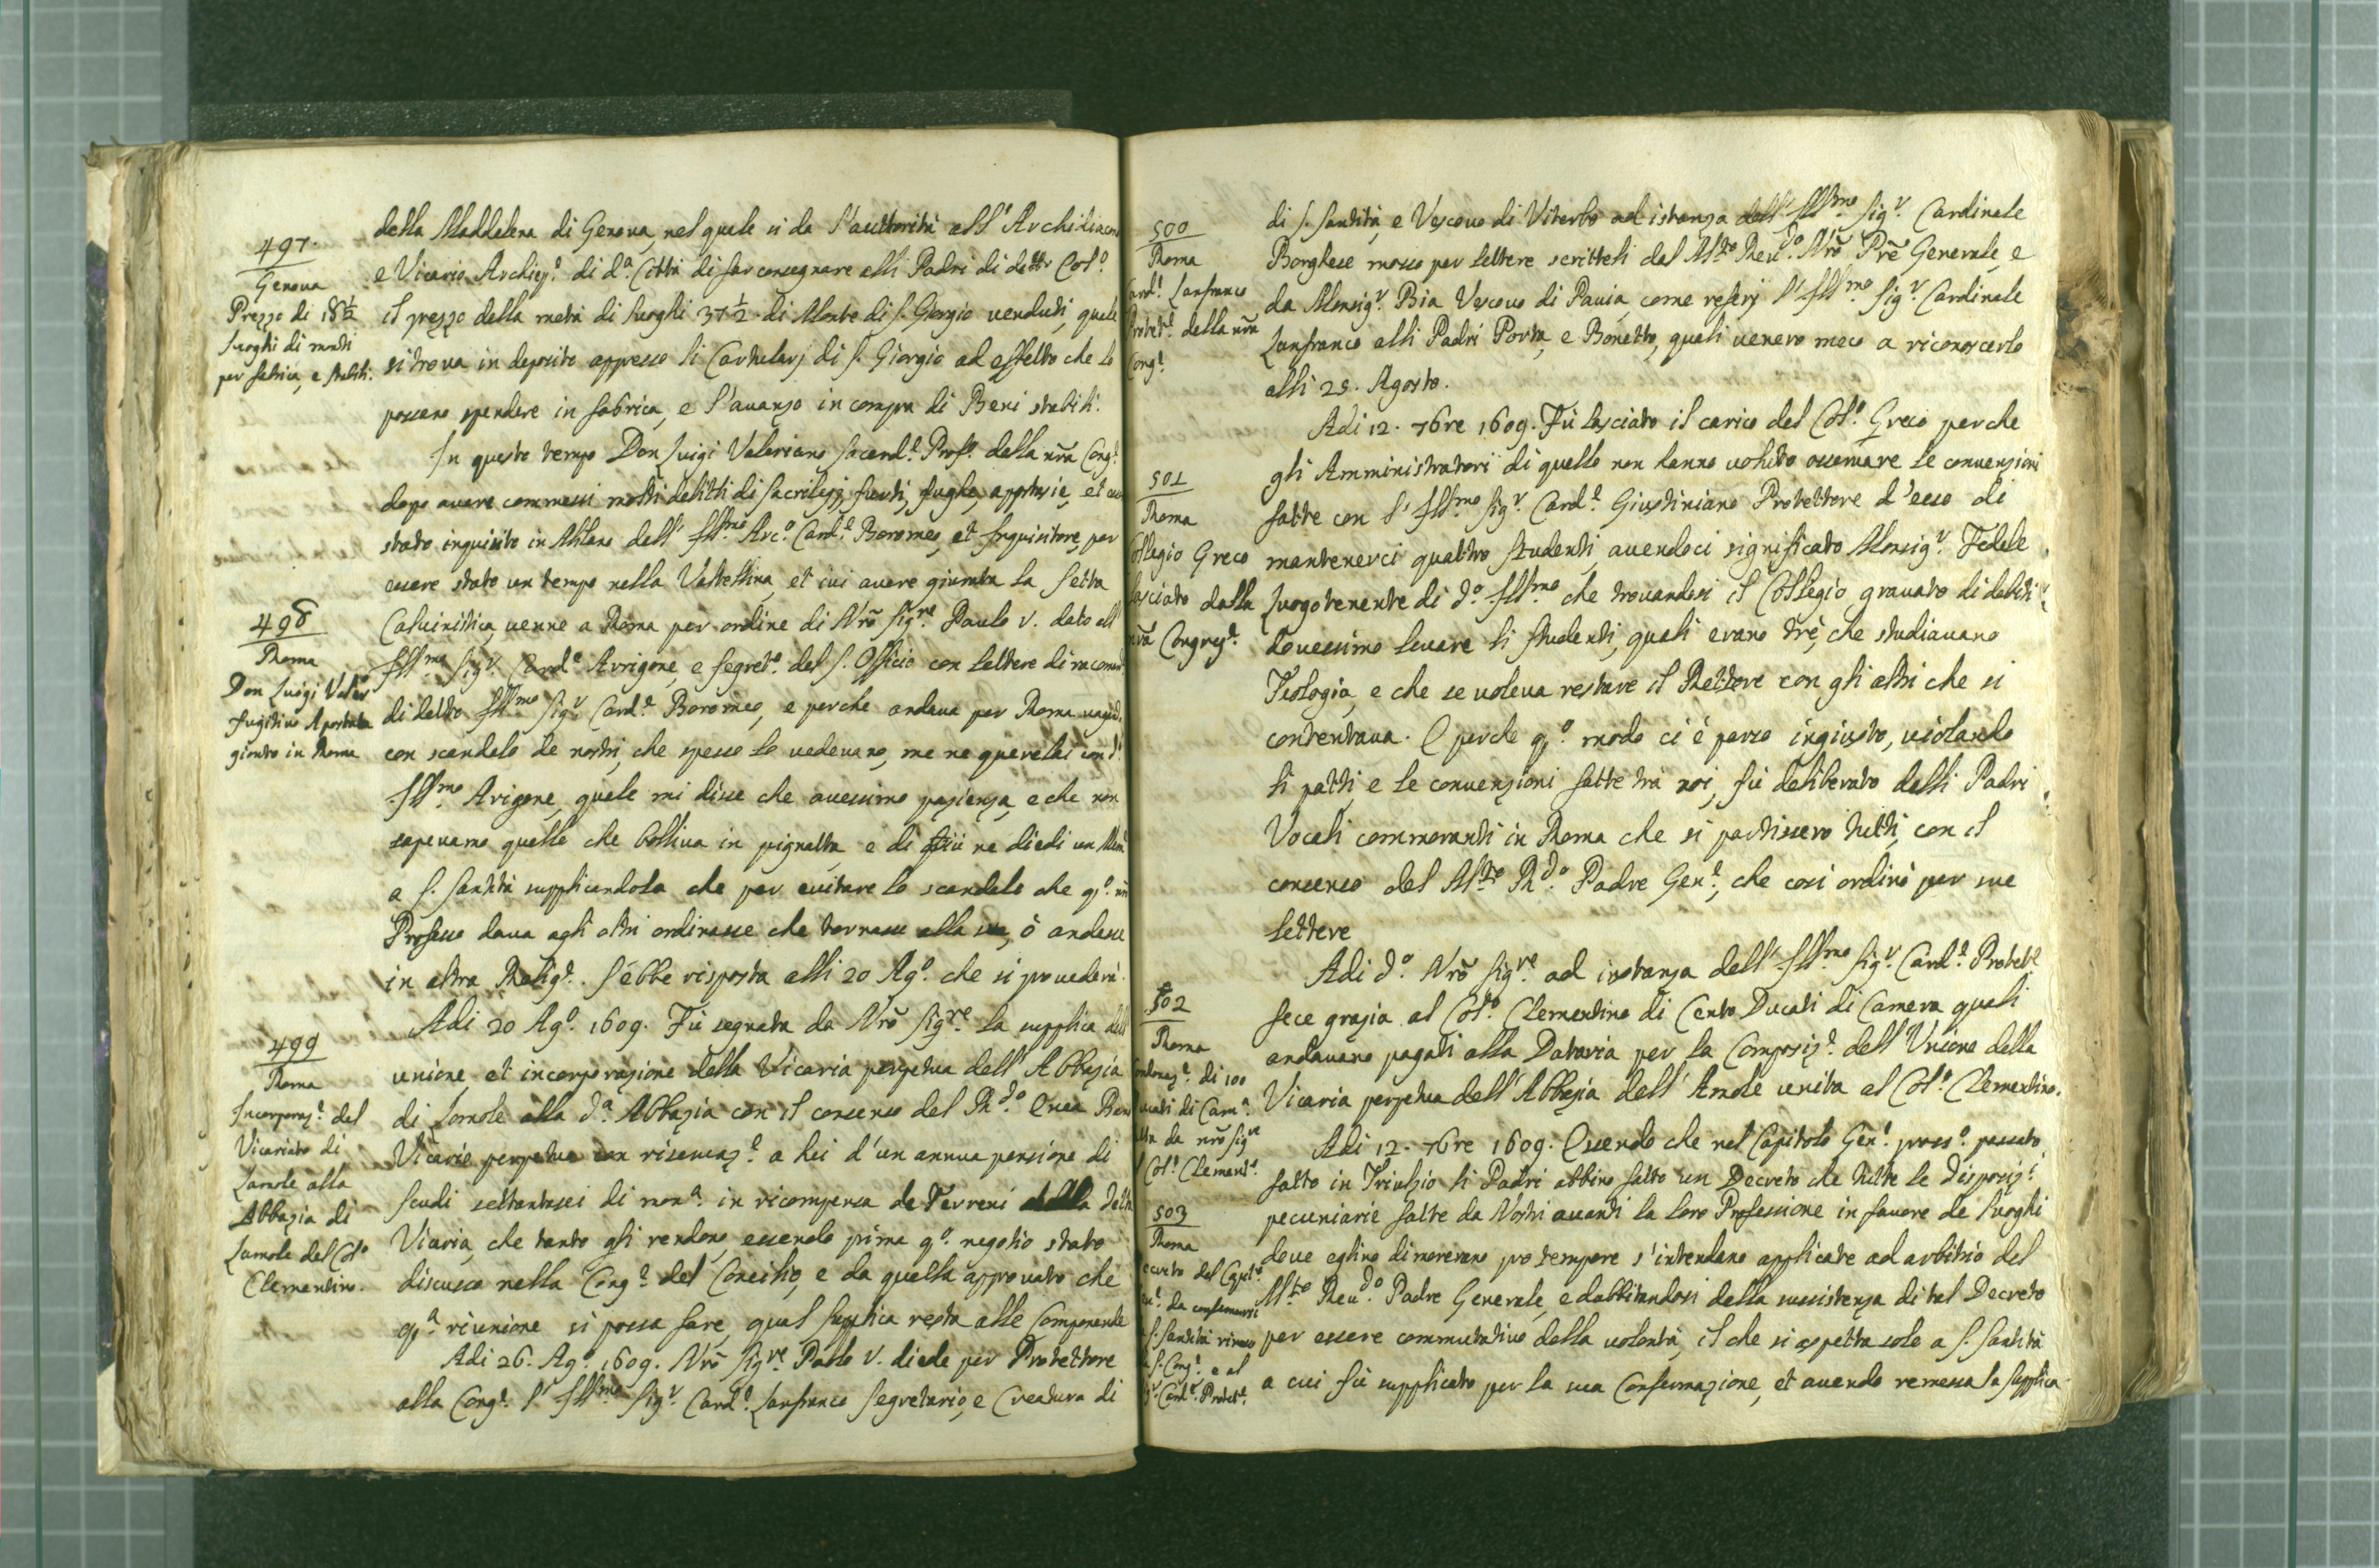 497.
Genova
Prezzo di 18½
luoghi di monti
per fabrica, e stabili.
della Maddalena di Genova, nel quale si da l'auttorità all' Archidiacono
e Vicario Archiep.º di d.ª Città di far consegnare alli Padri di detto Col.º
il prezzo della metà di luoghi 37½ di Monte di S. Giorgio venduti, quale
si trova in deposito appresso li Cartularj di S. Giorgio ad effetto che lo
possano spendere in fabrica, e l'avanzo in compra di Beni stabili.
In questo tempo Don Luigi Valeriano Sacerd.e Prof.o della nra Cong.e
dopo avere commessi molti delitti di sacrilegij, furti, fughe, appstasie, et
stato inquisito in Milano dall' Ill.mo Arc.º Card.e Boromeo, et Inquisitore, per
essere stato un tempo nella Valtellina, et ivi avere giurata la Setta
498
Roma
Don Luigi Valer
fugitivo Apostata
gionto in Roma
Calvinistica, venne a Roma per ordine di Nrõ Sig.re Paulo V. dato all
Ill.mo Sig.r Card.e Arrigone, e Segret.º del S. Officio con lettere di racomand
di detto Ill.mo Sig.r Card.e Boromeo, e perche andava per Roma vagand.
con scandalo de nostri, che spesso lo vedevano, me ne querelai con d.
Ill.mo Arigone, quale mi disse che avessimo pazienza, e che non
sapevamo quello che bolliva in pignatta, e di più ne diedi un Mem
a S. Santità supplicandola che per evitare lo scandalo che q.º
Professo dava agli altri ordinasse che tornasse alla sua, ò andasse
in altra Relig.e. S'ebbe risposta alli 20 Ag.º che si provederà.
499
Roma
Incorporaz.e del
Vicariato di
Lamole alla
Abbazia di
Lamole del Col.º
Clementino.
Adi 20 Ag.º 1609. Fù segnata da Nrõ Sig.re la supplica dell
unione et incorporazione della Vicaria perpetua dell' Abbazia
di Lamole alla d.ª Abbazia con il consenso del R.do Enea
Vicario perpetuo con riservaz.e a lui d'un annua pensione di
scudi settantasei di mon.ª in ricompensa de Terreni della detta
Vicaria, che tanto gli rendono, essendo prima q.º negotio stato
discusso nella Cong.e del Concilio, e da quella approvato che
q.ª riunione si possa fare, qual supplica resta alle Componende
Adi 26. Ag.º 1609. Nrõ Sig.re Paolo V. diede per Protettore
alla Cong.e l' Ill.mo Sig.r Card.e Lanfranco Segretario, e Creatura di
500
Roma
Card.e Lanfranco
Protet.e della nrã
Cong.e
di S. Santità, e Vescovo di Viterbo ad istanza dell' Ill.mo Sig.r Cardinale
Borghese mosso per lettere scritteli dal M.to Reu.do Nrõ Prẽ Generale, e
da Monsig.r Bia Vescovo di Pavia, come referj l' Ill.mo Sig.r Cardinale
Lanfranco alli Padri Porta, e Bonetto, quali venero meco a riconoscerlo
alli 29. Agosto.
Adi 12. 7bre 1609. Fù lasciato il carico del Col.º Greco perche
501
Roma
Collegio Greco
lasciato dalla
nrã Congreg.e
gli Amministratori di quello non hanno voluto osservare le convenzioni
fatte con l' Ill.mo Sig.r Card.e Giustiniano Protettore d'esso di
mantenerci quattro studenti, avendoci significato Monsig.r Fedele
Luogotenente di d.º Ill.mo che trovandosi il Collegio gravato di debiti
dovessimo levare li studenti, quali erano trè, che studiavano
Teologia, e che se voleva restare il Rettore con gli altri che si
contentava. E perche q.º modo ci è parso ingiusto, violando
li patti, e le convenzioni fatte trà noi, fù deliberato dalli Padri
Vocali commoranti in Roma che si partissero tutti, con il
consenso del M.to R.do Padre Gen.e, che così ordinò per sue
lettere
502
Roma
di 100
Ducati di Cam.ª
da nrõ Sig.re
Col.º Clement.º
Adi d.º Nrõ Sig.re ad instanza dell' Ill.mo Sig.r Card.e Protet.e
fece grazia al Col.º Clementino di Cento Ducati di Camera quali
andavano pagati alla Dataria per la Composiz.e dell' Unione della
Vicaria perpetua dell' Abbazia dell' Amole unita al Col.º Clementino.
503
Roma
Decreto del Capit.º
da confermarsi
S. Santità rimesso
S. Cong.e e al
Card.e Protet.e
Adi 12. 7bre 1609. Essendo che nel Capitolo Gen.e pross.º passato
fatto in Trivulzio li Padri abbino fatto un Decreto che tutte le disposiz.i
pecuniarie fatte da Nostri avanti la loro Professione in favore de luoghi
dove eglino dimorerano pro tempore s'intendano applicate ad arbitrio del
M.to Reu.do Padre Generale, e dubbitandosi della sussistenza di tal Decreto
per essere commutativo della volontà, il che si aspetta solo a S. Santità
a cui fù supplicato per la sua Confermazione, et avendo remessa la supplica